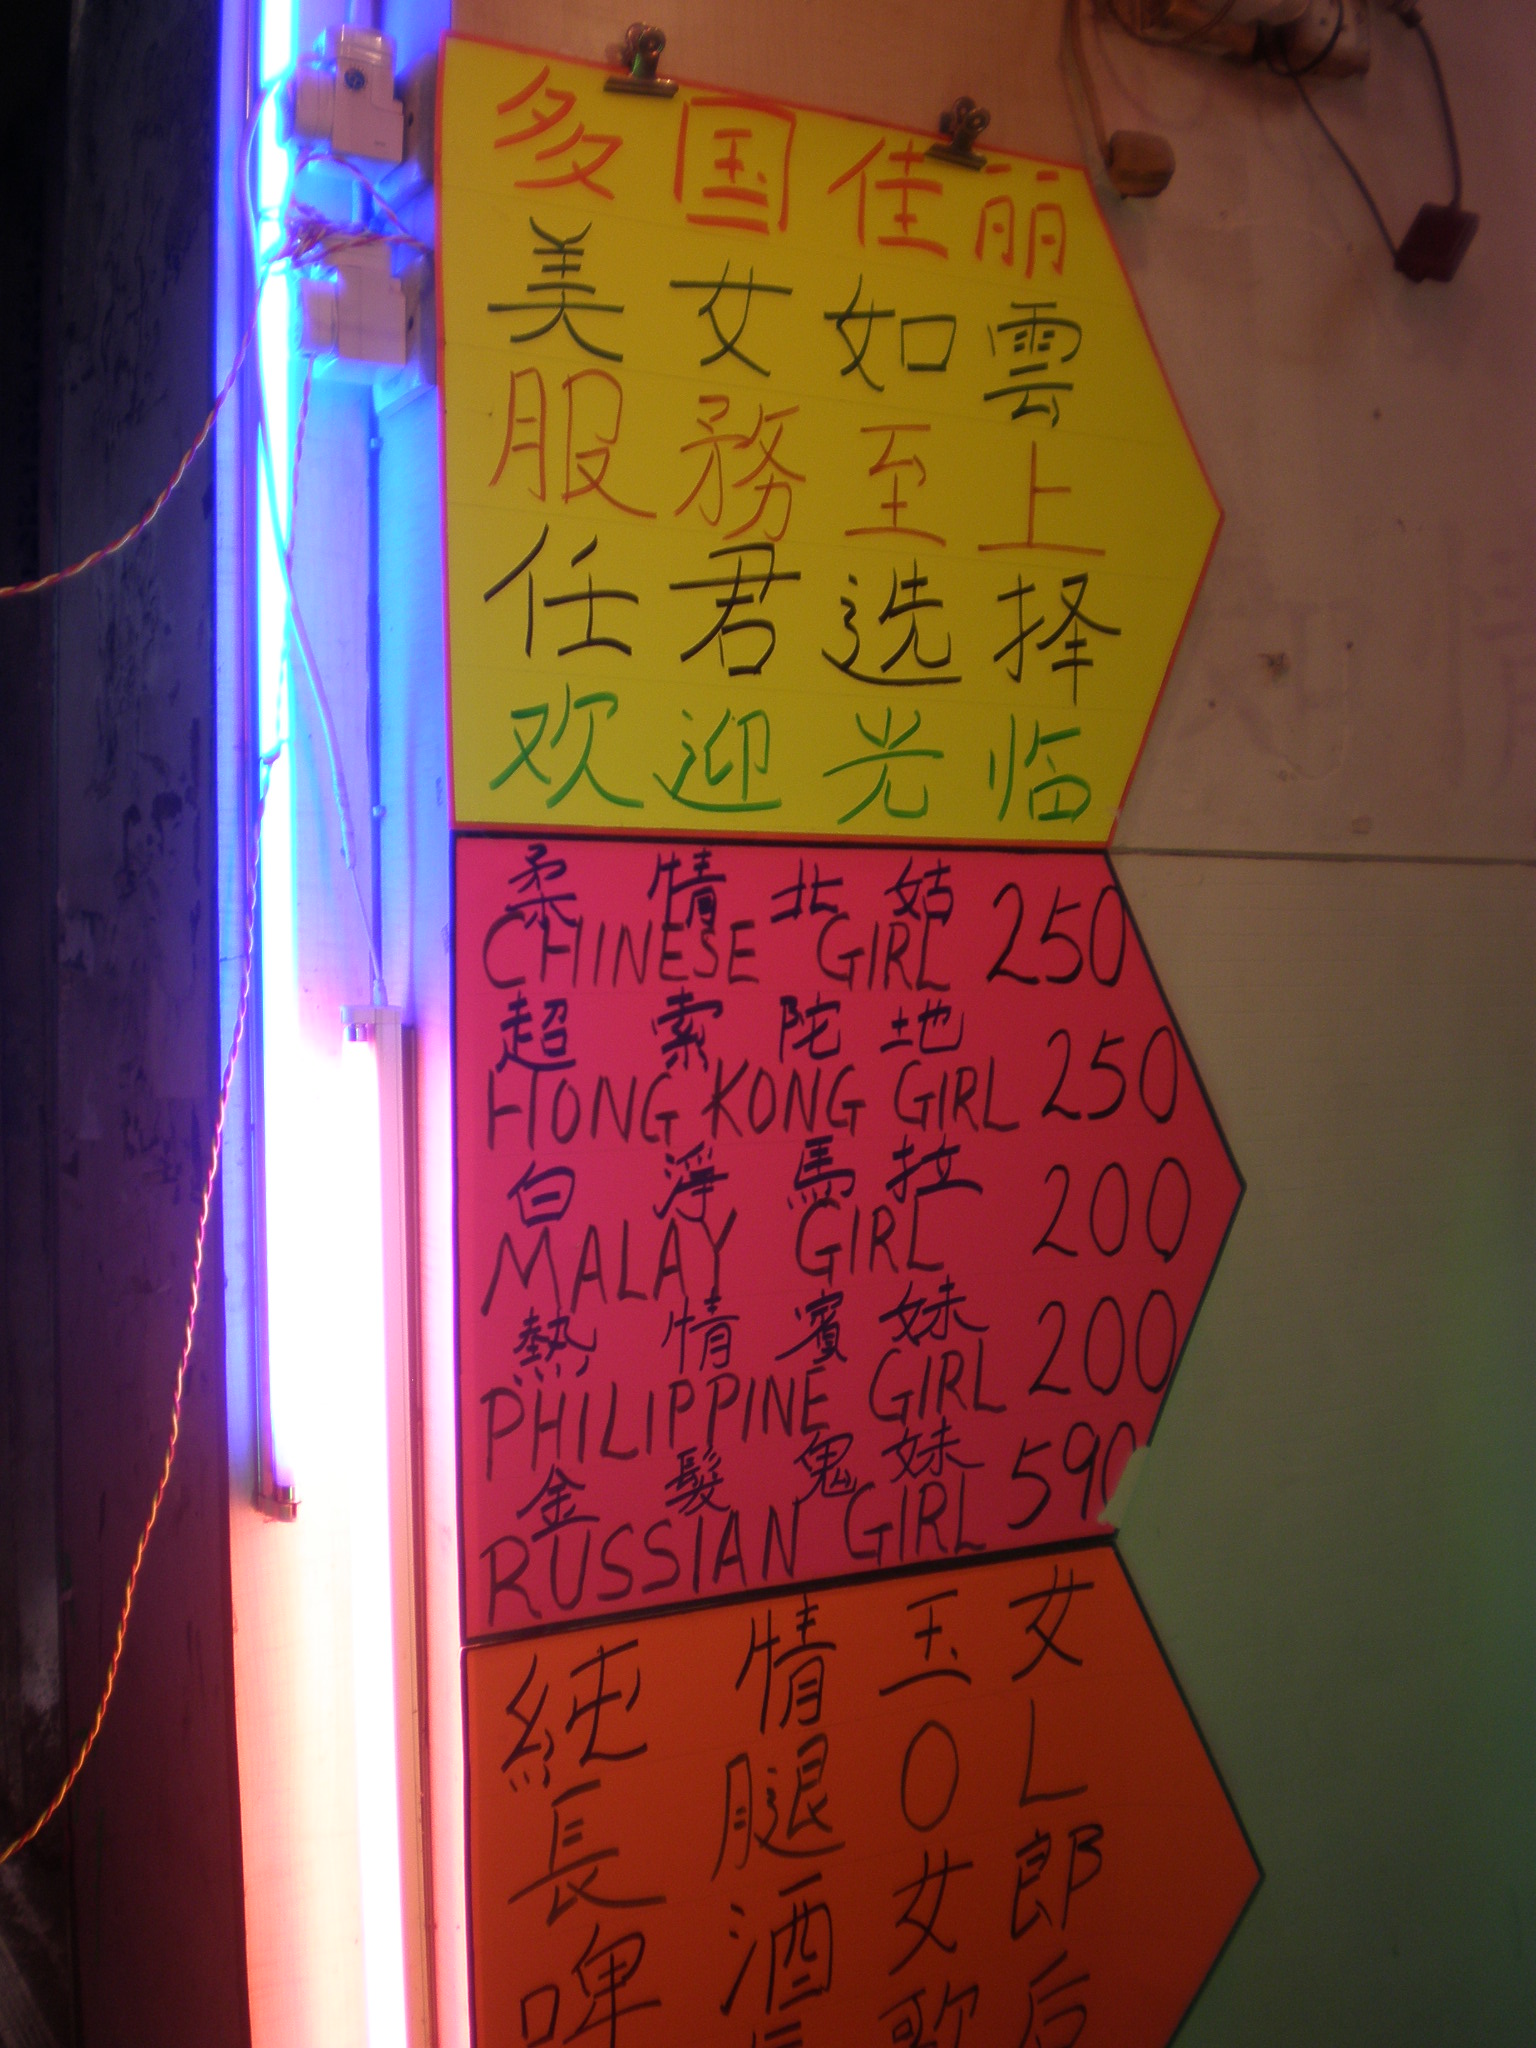 多国佳丽
美女如雲
服務至上
任君选择
欢迎光临
柔情北姑
CHINESE GIRL 250
超索陀地
HONG KONG GIRL 250
白淨馬拉
MALAY GIRL 200
熱情賓妹
PHILIPPINE GIRL 200
金髮鬼妹
RUSSIAN GIRL 590
純情玉女
長腿OL
啤酒女郎